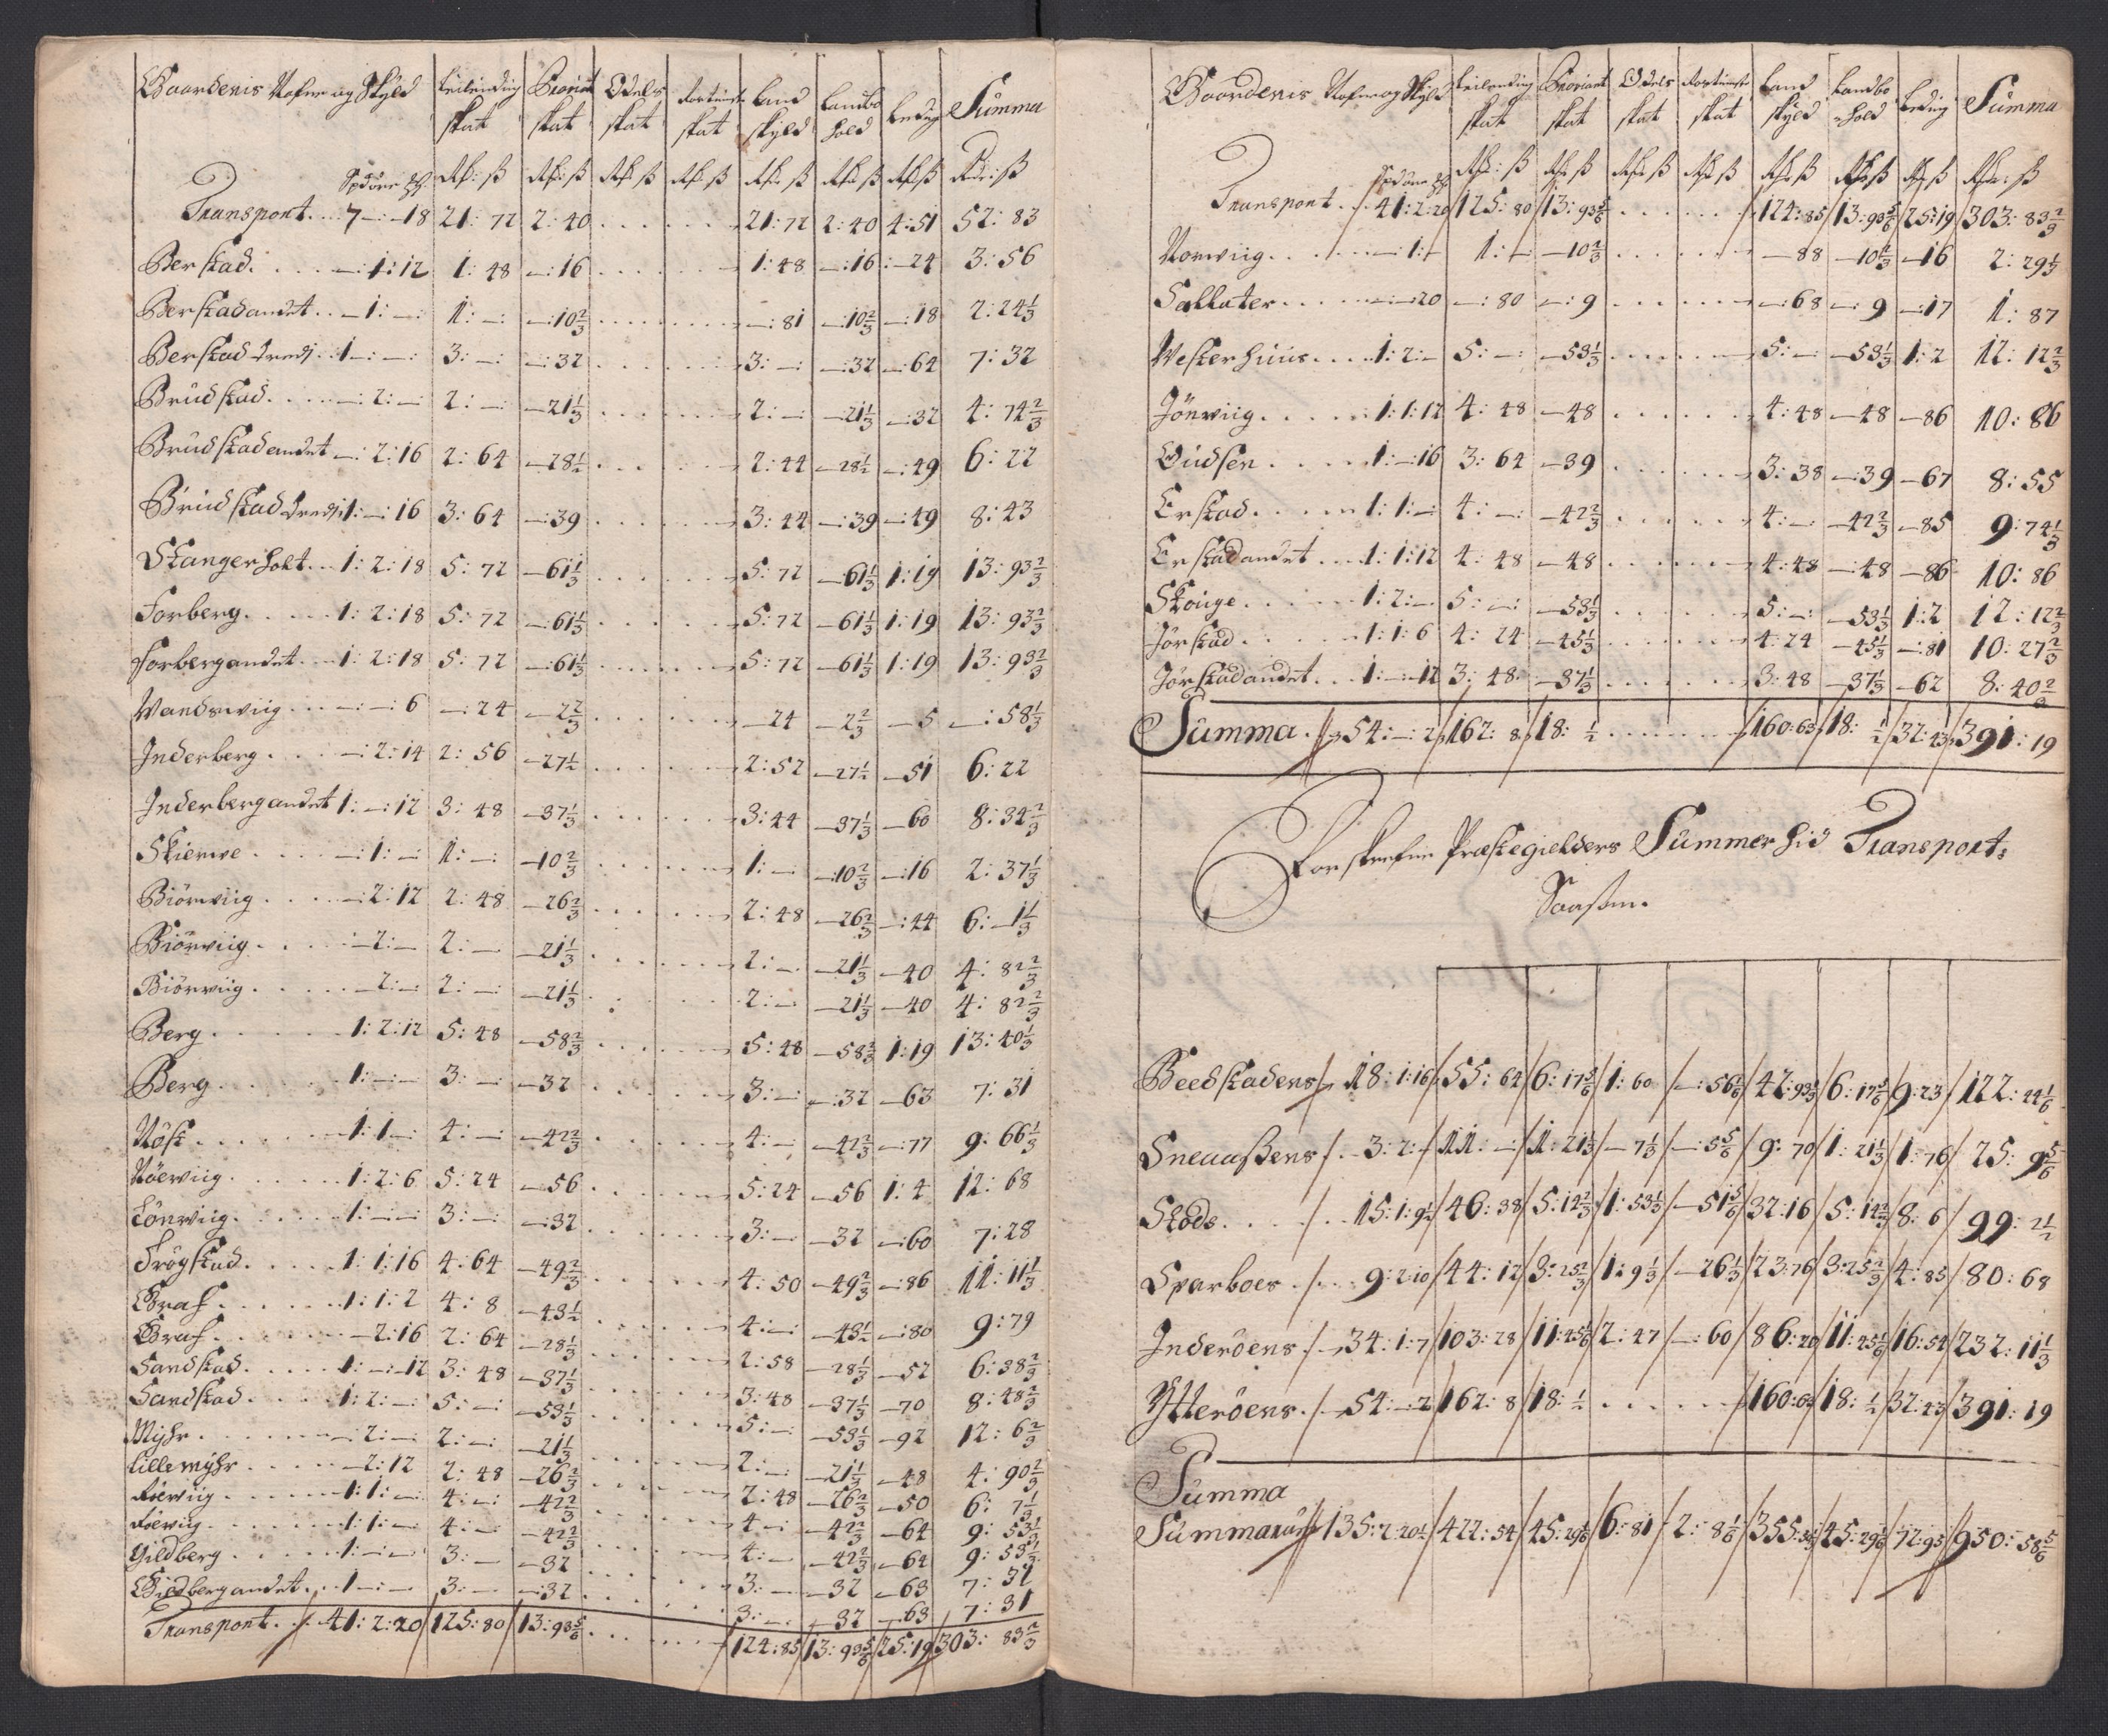 Gaardenis Nafne og Skyld | Leilending skat | Proviant skat | Odels skat | skat | Land skyld | Landbo hold | Leding | Summa
Transport . . 7 — : — 18 | 21 : 72 | 2 : 40 | . . . | . . . | 21 : 72 | 2 : 40 | 4 : 51 | 52 : 83
Berstad . . . — : 1 : 12 | 1 : 48 | — : 16 | . . . | . . . | 1 : 48 | — : 16 | : — 24 | 3 : 56
Berstad andet . . — 1 : — : | 1 : — : | — : 10 2/3 | . . . | . . . | — : 81 | — : 10 2/3 | — : 18 | 2 : 24 1/3
Berstad tredj . . 1 — : — : | 3 : — : | — : 32 | . . . | . . . | 3 : — : | — : 32 | — : 64 | 7 : 32
Brudstad . . . — : 2 : — : | 2 : — : | — 21 1/3 | . . . | . . . | 2 : — : | — 21 1/3 | — : 32 | 4 : 74 2/3
Brudstad andet — : 2 : 16 | 2 : 64 | — 28 1/2 | . . . | . . . | 2 : 44 | — 28 1/2 | — : 49 | 6 : 22
Brudstad tredj 1 : — : 16 | 3 : 64 | — : 39 | . . . | . . . | 3 : 44 | — : 39 | — : 49 | 8 : 43
Stangerholt . . 1 : 2 : 18 | 5 : 72 | — 61 1/3 | . . . | . . . | 5 : 72 | — 61 1/3 | 1 : 19 | 13 : 93 2/3
Forberg . . . 1 : 2 : 18 | 5 : 72 | — : 61 1/3 | . . . | . . . | 5 : 72 | — 61 1/3 | 1 : 19 | 13 : 93 2/3
Forberg andet . . 1 : 2 : 18 | 5 : 72 | — : 61 1/3 | . . . | . . . | 5 : 72 | — 61 1/3 | 1 : 19 | 13 : 93 2/3
Wandswiig . . . — : — : 6 | — : 24 | — 2 2/3 | . . . | . . . | — 24 | — 2 2/3 | — 5 | — : 58 1/3
Inderberg . . . — : 2 : 14 | 2 : 56 | — 27 1/2 | . . . | . . . | 2 : 52 | — 27 1/2 | — 51 | 6 : 22
Inderberg andet 1 : — : 12 | 3 : 48 | — 37 1/3 | . . . | . . . | 3 : 44 | — 37 1/3 | — 60 | 8 : 34 2/3
Skierwe . . . — : 1 : — | 1 : — : | — 10 2/3 | . . . | . . . | 1 : — | — : 10 2/3 | — : 16 | 2 : 37 1/3
Biörwiig . . . — : 2 : 12 | 2 : 48 | — 26 2/3 | . . . | . . . | 2 : 48 | — 26 2/3 | — : 44 | 6 : — 1 1/3
Biörwiig . . . — 2 : — | 2 : — | — 21 1/3 | . . . | . . . | 2 : — | — 21 1/3 | — 40 | 4 : 82 2/3
Biörwiig . . . — 2 : — | 2 : — : | — 21 1/3 | . . . | . . . | 2 : — | — 21 1/3 | — 40 | 4 : 82 2/3
Berg . . . 1 : 2 : 12 | 5 : 48 | — 58 2/3 | . . . | . . . | 5 : 48 | — 58 2/3 | 1 : 19 | 13 : 40 1/3
Berg . . . 1 : — : — | 3 : — : | — 32 | . . . | . . . | 3 : — : | — : 32 | — 63 | 7 : 31
Röst . . . 1 : 1 : — | 4 : — | — 42 2/3 | . . . | . . . | 4 : — | — 42 2/3 | — : 77 | 9 : 66 1/3
Röewiig . . . 1 : 2 : 6 | 5 : 24 | — 56 | . . . | . . . | 5 : 24 | — 56 | 1 : 4 | 12 : 68
Lönwiig . . . 1 : — : — | 3 : — : | — : 32 | . . . | . . . | 3 : — | — 32 | — : 60 | 7 : 28
Trögstad . . . 1 : 1 : 16 | 4 : 64 | — 49 2/3 | . . . | . . . | 4 : 50 | — 49 2/3 | — : 86 | 11 : 11 1/3
Graf . . . 1 : 1 : 2 | 4 : 8 | — 43 1/2 | . . . | . . . | 4 : — : | — 43 1/2 | — : 80 | 9 : 79
Graf . . . — 2 : 16 | 2 : 64 | — 28 1/3 | . . . | . . . | 2 : 58 | — 28 1/3 | — 52 | 6 : 38 2/3
Sandstad . . . 1 : — : 12 | 3 : 48 | — 37 1/3 | . . . | . . . | 3 : 48 | — 37 1/3 | — 70 | 8 : 48 2/3
Sandstad . . . 1 : 2 : — : | 5 : — : | — 53 1/3 | . . . | . . . | 5 : — : | — 53 1/3 | — 92 | 12 : 6 2/3
Myhr . . . — : 2 : — : | 2 : — : | — 21 1/3 | . . . | . . . | 2 : — : | — 21 1/3 | — 48 | 4 : 90 2/3
Lillemyhr . . . — 2 : 12 | 2 : 48 | — 26 2/3 | . . . | . . . | 2 : 48 | — 26 2/3 | — 50 | 6 : 7 1/3
1 : 1 : — : | 4 : — : | — 42 2/3 | . . . | . . . | 4 — : | — 42 2/3 | — 64 | 9 : 53 1/3
1 : 1 : — : | 4 : — : | — 42 2/3 | . . . | . . . | 4 : — | — 42 2/3 | — 64 | 9 : 53 1/3
Gildberg . . . 1 : — : — | 3 : — | — 32 | . . . | . . . | 3 : — | — 32 | — 63 | 7 : 31
Gildberg andet . . 1 — : — | 3 : — | — : 32 | . . . | . . . | 3 : — | 32 | — 63 | 7 : 31
Transport . . 41 : 2 : 20 | 125 : 80 | 13 : 93 5/6 | . . . | . . . | 124 : 85 | 13 : 93 5/6 | 25 : 19 | 303 : 83 2/3
Gaardenis Nafne og Skyld | Leilending skat | Proviant skat | Odels skat | skat | Land skyld | Landbo hold | Leding | Summa
Transport . . 41 : 2 : 20 | 125 : 80 | 13 : 93 5/6 | . . . | . . . | 124 : 85 | 13 : 93 5/6 | 25 : 19 | 303 : 83 2/3
Norwiig . . . — 1 : — | 1 : — | — 10 2/3 | . . . | . . . | — 88 | — 10 2/3 | — 16 | 2 : 29 1/3
Sallater . . . — : — 20 | — : 80 | — : 9 | . . . | . . . | — : 68 | — : 9 | — : 17 | 1 : 87
Westerhuus . . . 1 : 2 : — | 5 : — : | — 53 1/3 | . . . | . . . | 5 : — : | — 53 1/3 | 1 : 2 | 12 : 12 2/3
Jönwiig . . . 1 : 1 : 12 | 4 : 48 | — 48 | . . . | . . . | 4 : 48 | — 48 | — 86 | 10 : 86
Oudsen . . . 1 : — : 16 | 3 : 64 | — 39 | . . . | . . . | 3 : 38 | — : 39 | — 67 | 8 : 55
Erstad . . . 1 : 1 : — | 4 : — : | — 42 2/3 | . . . | . . . | 4 : — : | — 42 2/3 | — 85 | 9 : 74 1/3
Erstad andet . . 1 : 1 : 12 | 4 : 48 | — 48 | . . . | . . . | 4 : 48 | — : 48 | — 86 | 10 : 86
Skouge . . . 1 : 2 : — | 5 : — : | — 53 1/3 | . . . | . . . | 5 : — : | — 53 1/3 | 1 : 2 | 12 : 12 2/3
Jörstad . . . 1 : 1 : 6 | 4 : 24 | — 45 1/3 | . . . | . . . | 4 : 24 | — 45 1/3 | — : 81 | 10 : 27 2/3
Jörstad andet . . 1 : — : 12 | 3 : 48 | — 37 1/3 | . . . | . . . | 3 : 48 | — 37 1/3 | — 62 | 8 : 40 2/3
Summa . 54 : — : 2 | 162 : 8 | 18 : 1/2 | . . . | . . . | 160 : 63 | 18 : 1/2 | 32 : 43 | 391 : 19
Forskrefne Præstegielders Summer hid Transport:
Saasom.
Beedstadens 18 : 1 : 16 | 55 : 64 | 6 : 17 5/6 | 1 : 60 | — : 56 1/6 | 42 : 93 | 6 : 17 5/6 | 9 : 23 | 122 : 44 1/6
Sneaasens . 3 : 2 : — | 11 : — : | 1 : 21 1/3 | — 7 1/3 | — : 5 5/6 | 9 : 70 | 1 : 21 1/3 | 1 : 76 | 25 : 9 5/6
Stods . . . 15 : 1 : 9 1/2 | 46 : 38 | 5 : 14 2/3 | 1 : 53 1/3 | — 51 5/6 | 32 : 16 | 5 : 14 2/3 | 8 : 6 | 99 : 2 1/2
Sparboes . . . 9 : 2 10 | 44 : 12 | 3 : 25 2/3 | 1 : 9 1/3 | — 26 1/3 | 23 : 76 | 3 : 25 2/3 | 4 : 85 | 80 : 68
Inderöens . 34 : 1 : 7 | 103 : 28 | 11 : 45 1/6 | 2 : 47 | — : 60 | 86 : 20 | 11 : 45 1/6 | 16 : 54 | 232 : 11 1/3
Ytteröens . 54 : — : 2 | 162 : 8 | 18 : 1/2 | . . . | . . . | 160 : 63 | 18 : 1/2 | 32 : 43 | 391 : 19
Summa
Summarum 135 : 2 20 1/2 | 422 : 54 | 45 : 29 1/6 | 6 : 81 | 2 : 8 1/6 | 355 : 50 | 45 : 29 1/6 | 72 : 95 | 950 : 58 5/6